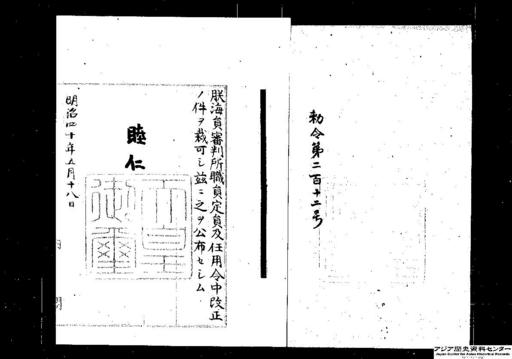 勅令第二百十二号
朕海員審判所職員定員及任用令中改正
ノ件ヲ裁可シ茲ニ之ヲ公布セシム
睦仁
天皇御璽
明治四十年五月十八日
アジア歴史資料センター
Japan Center for Asian Historical Records